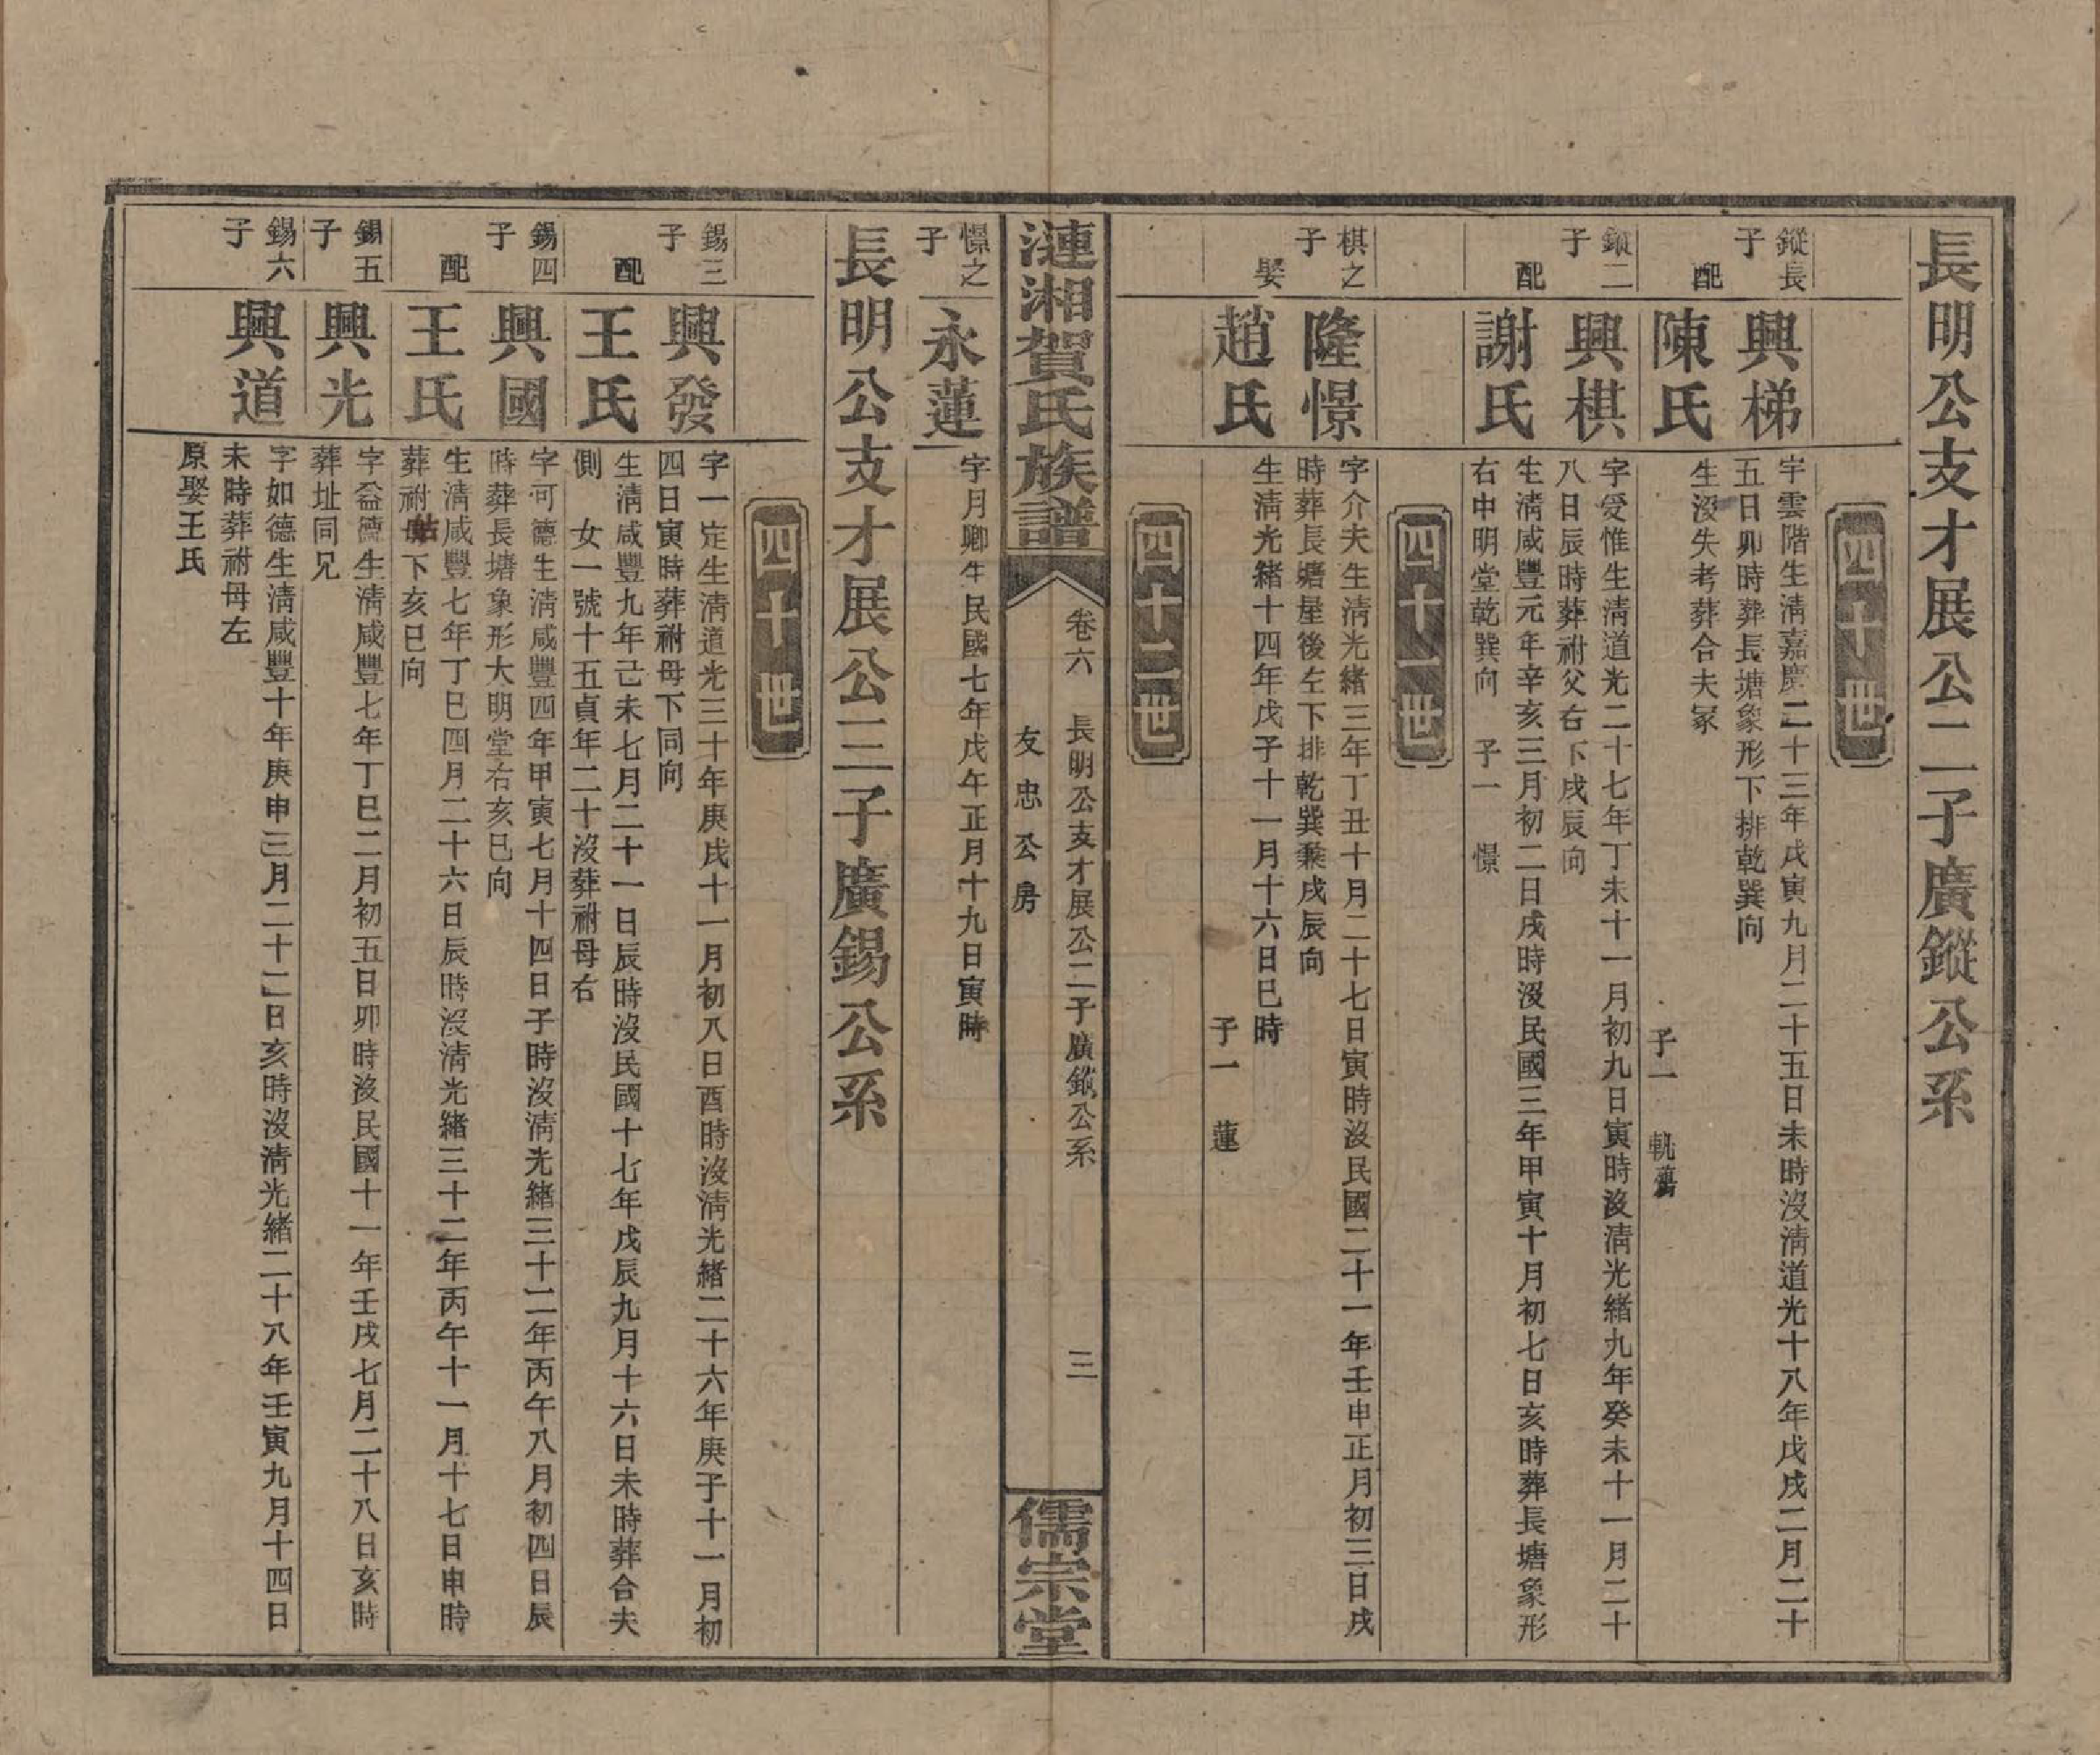 長明公支才展公二子廣鏦公系
四十世
鏦長子
興梯
字雲階生清嘉慶二十三年戊寅九月二十五日未時沒清道光十八年戊戌二月二十
五日卯時葬長塘象形下排乾巽向
配
陳氏
生沒失考葬合夫冢
子一 軏舊
鏦二子
興棋
字受惟生清道光二十七年丁未十一月初九日寅時沒清光緒九年癸未十一月二十
八日辰時葬祔父右下戌辰向
配
謝氏
生清咸豐元年辛亥三月初二日戌時沒民國三年甲寅十月初七日亥時葬長塘象形
右申明堂乾巽向 子一 憬
四十一世
棋之子
隆憬
字介夫生清光緒三年丁丑十月二十七日寅時沒民國二十一年壬申正月初三日戌
時葬長塘屋後左下排乾巽兼戌辰向
娶
趙氏
生清光緒十四年戊子十一月十六日巳時
子一 蓮
四十二世
漣湘賀氏族譜
卷六 長明公支才展公二子廣鏦公系 三
友忠公房
儒宗堂
憬之子
永蓮
字月卿生民國七年戊午正月十九日寅時
長明公支才展公三子廣錫公系
四十世
錫三子
興發
字一定生清道光三十年庚戌十一月初八日酉時沒清光緒二十六年庚子十一月初
四日寅時葬祔母下同向
配
王氏
生清咸豐九年己未七月二十一日辰時沒民國十七年戊辰九月十六日未時葬合夫
側 女一號十五貞年二十沒葬祔母右
錫四子
興國
字可德生清咸豐四年甲寅七月十四日子時沒清光緒三十二年丙午八月初四日辰
時葬長塘象形大明堂右亥巳向
配
王氏
生清咸豐七年丁巳四月二十六日辰時沒清光緒三十二年丙午十一月十七日申時
葬祔姑下亥巳向
錫五子
興光
字益德生清咸豐七年丁巳二月初五日卯時沒民國十一年壬戌七月二十八日亥時
葬址同兄
錫六子
興道
字如德生清咸豐十年庚申三月二十二日亥時沒清光緒二十八年壬寅九月十四日
未時葬祔母左
原娶王氏